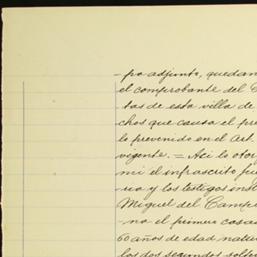 -po adjunto, quedan
el comprobante del C
tas de esta villa de
chos que causa el pre
lo prevenido en el Art.
vigente. = Así lo otor
mí el infrascrito fu
na y los testigos inst
Miguel del Campi
-no el primero casad
60 años de edad natur
los dos segundos solter